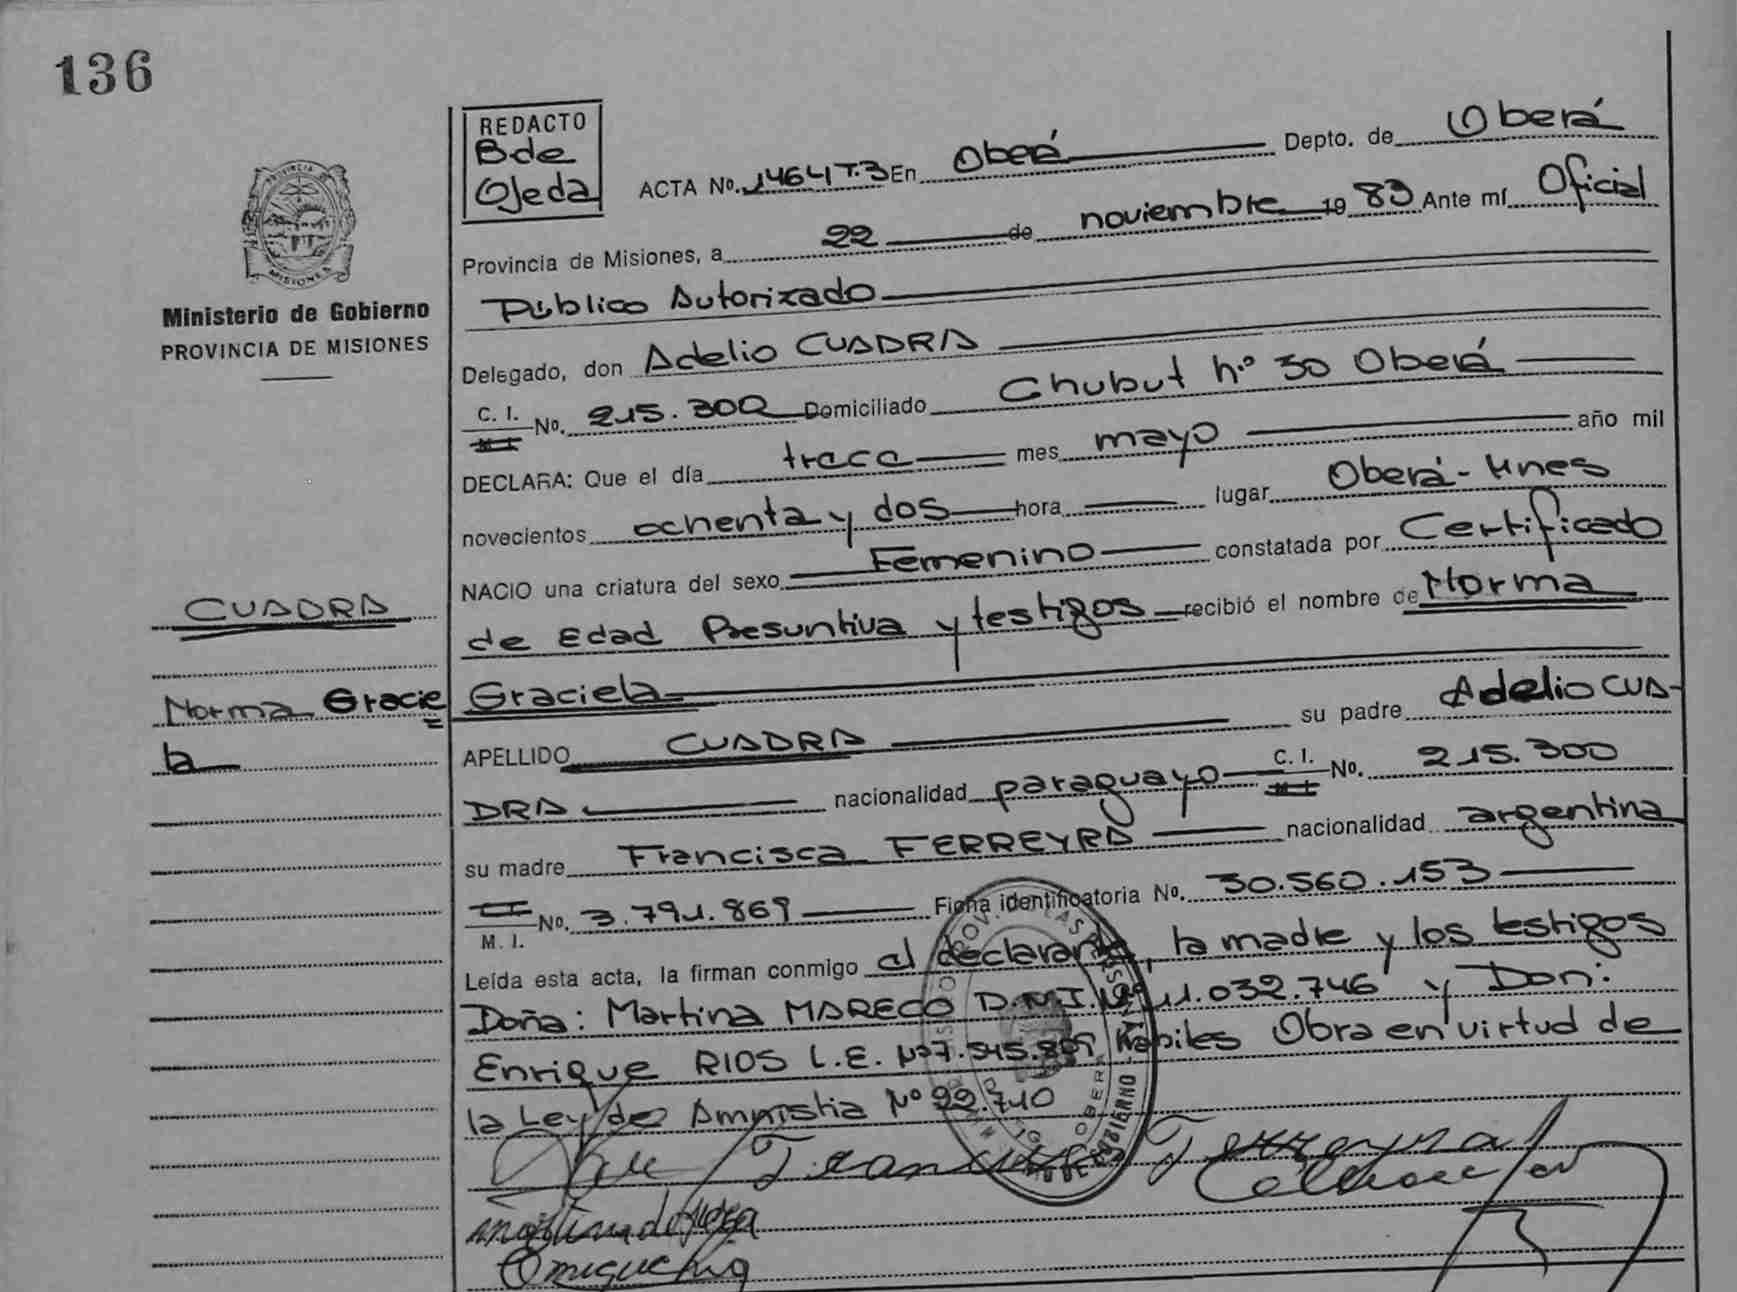 136
REDACTO
B de
Ojeda
ACTA No. 1464 T.3 En Oberá Depto. de Oberá
Provincia de Misiones, a 22 de noviembre 19 83 Ante mí Oficial
Público Autorizado
MISIONES
Ministerio de Gobierno
PROVINCIA DE MISIONES
Delegado, don Adelio CUADRA
C. I. No. 215.300 Domiciliado Chubut n.º 30 Oberá
DECLARA: Que el día trece mes mayo año mil
novecientos ochenta y dos hora lugar Oberá - Mnes
NACIO una criatura del sexo Femenino constatada por Certificado
de Edad Presuntiva y testigos recibió el nombre de Norma
Graciela
CUADRA
Norma Gracie=
la
APELLIDO CUADRA su padre Adelio CUA-
DRA nacionalidad paraguayo C. I. No. 215.300
su madre Francisca FERREYRA nacionalidad argentina
M. I. No. 3.791.869 Ficha identificatoria No. 30.560.153
Leída esta acta, la firman conmigo el declarante, la madre y los testigos
Doña: Martina MARECO D.N.I. Nº 11.032.746 y Don:
Enrique RIOS L.E. Nº 7.545.889 hábiles Obra en virtud de
la Ley de Amnistia Nº 22.710
Francisca Ferreyra